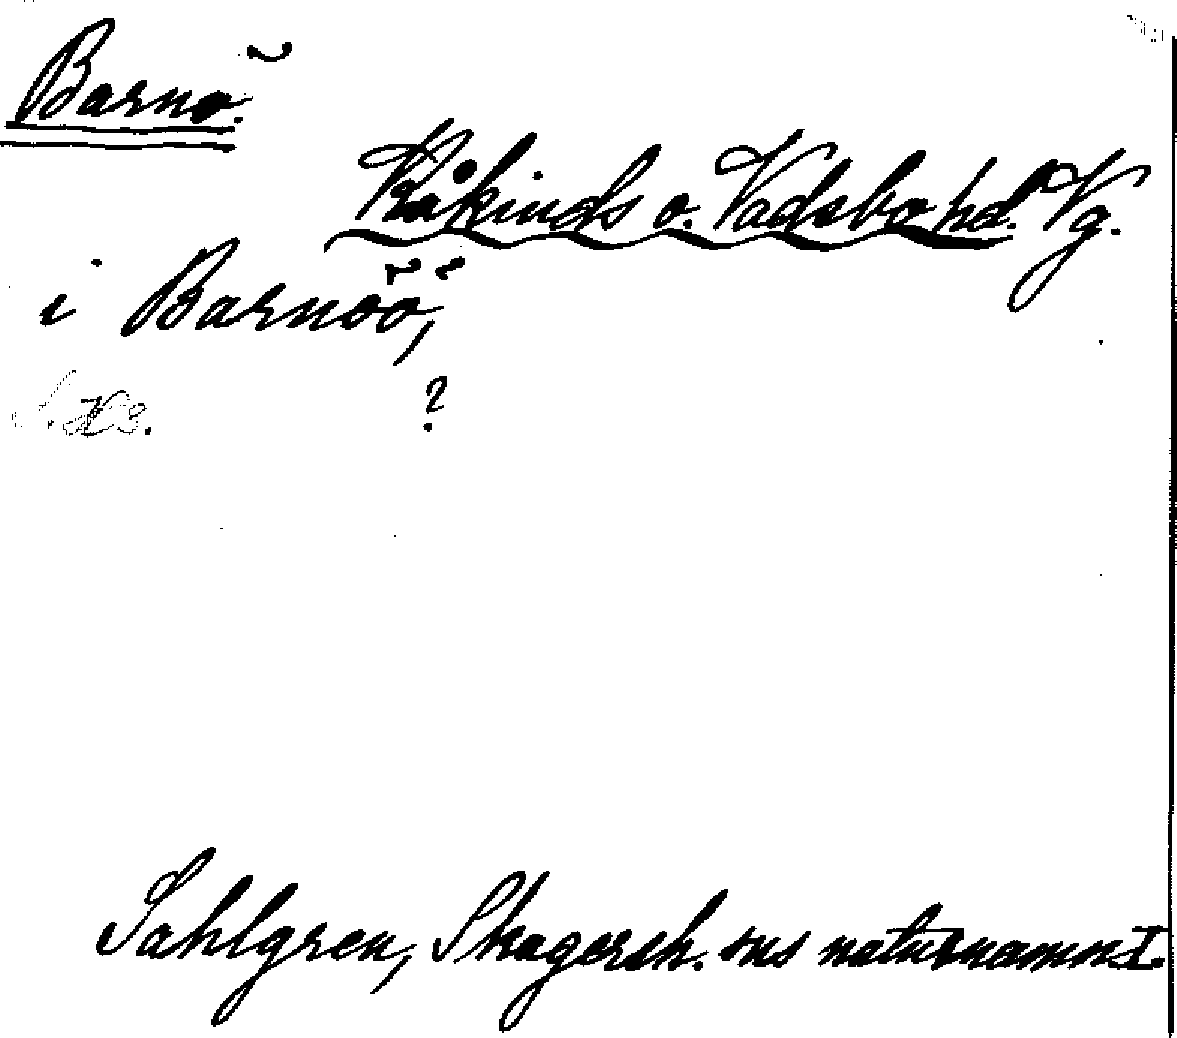 Barnö.
Kåkinds o. Vadsbo hd. Vg.
i Barnöö,
?
Sahlgren, Skagersh. sns naturnamn I.